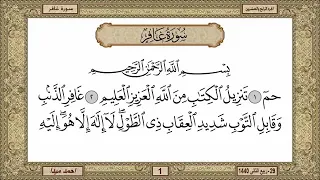 الجزء الرابع والعشرين
سورة غافر
سُورَةُ غَافِرٍ
بِسْمِ اللَّهِ الرَّحْمَٰنِ الرَّحِيمِ
حمٓ ١ تَنزِيلُ الْكِتَٰبِ مِنَ اللَّهِ الْعَزِيزِ الْعَلِيمِ ٢ غَافِرِ الذَّنۢبِ
وَقَابِلِ التَّوْبِ شَدِيدِ الْعِقَابِ ذِى الطَّوْلِ ۖ لَآ إِلَٰهَ إِلَّا هُوَ ۖ إِلَيْهِ
29 - ربيع الثاني 1440
1